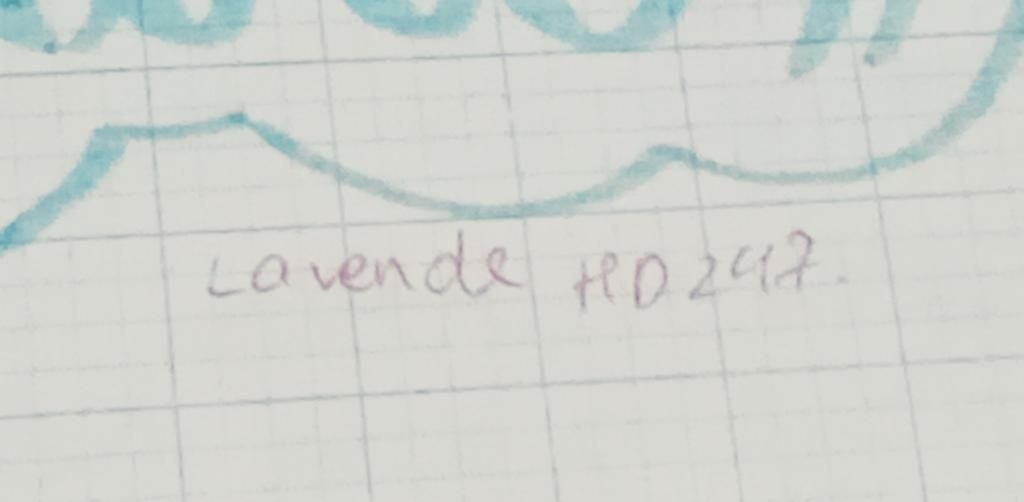 Lavende HD247.